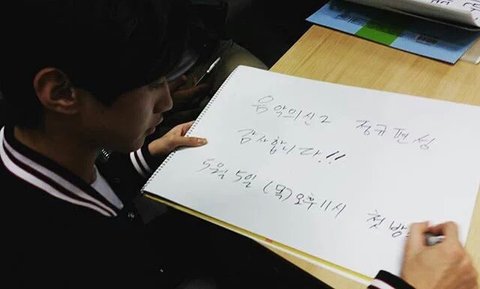 음악의신2 정규편성
감사합니다!!
5월 5일 (목) 오후 11시 첫방